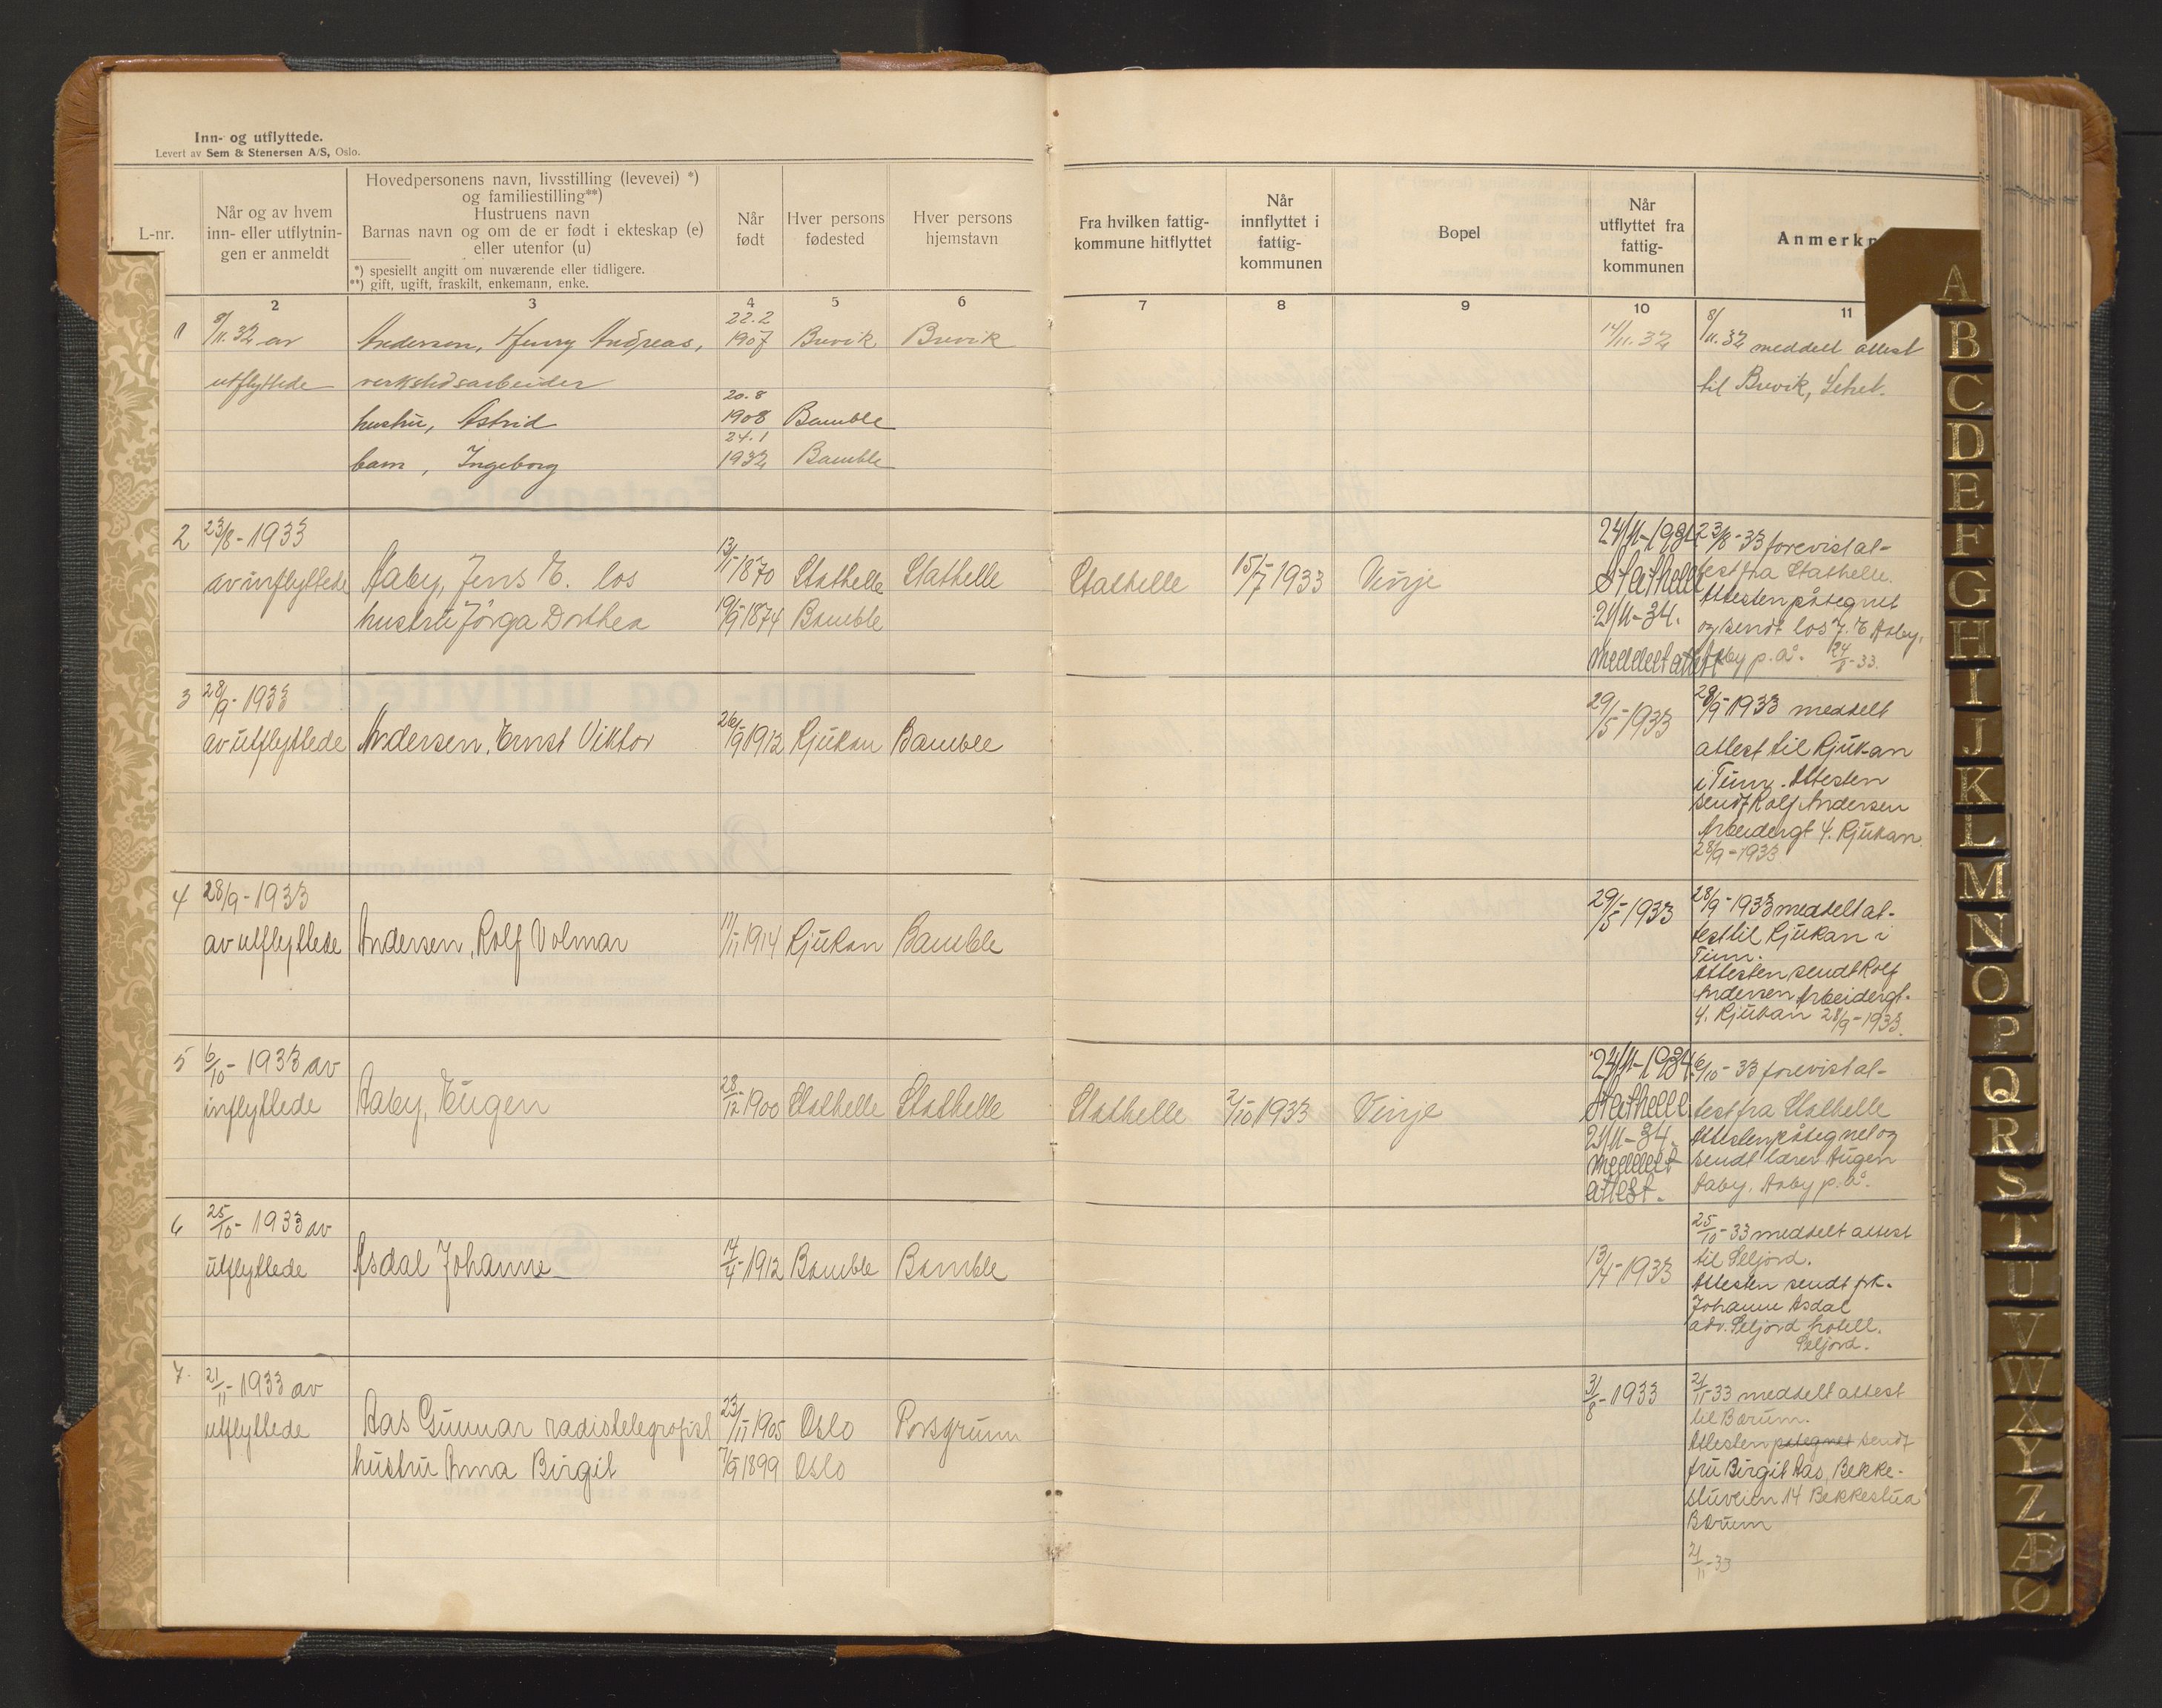 Inn- og utflyttede.
Levert av Sem & Stenersen A/S, Oslo.
L-nr.
Når og av hvem
inn- eller utflytnin-
gen er anmeldt
Hovedpersonens navn, livsstilling (levevei) *)
og familiestilling**)
Hustruens navn
Barnas navn og om de er født i ekteskap (e)
eller utenfor (u)
*) spesiellt angitt om nuværende eller tidligere.
**) gift, ugift, fraskilt, enkemann, enke.
Når
født
Hver persons
fødested
Hver persons
hjemstavn
Fra hvilken fattig-
kommune hitflyttet
Når
innflyttet i
fattig-
kommunen
Bopel
Når
utflyttet fra
fattig-
kommunen
Anmerkn
2 3 4 5 6 7 8 9 10 11
1 8/11.32 av Andersen, Henry Andreas, 22.2 1907 Brevik Brevik 14/11.32 8/11.32 meddelt attest
utflyttede verkstedsarbeider til Brevik,
hustru, Astrid 20.8 1908 Bamble
barn, Ingeborg 24.1 1932 Bamble
2 23/8-1933 24/11-1934 23/8-33 forevist at-
av inflyttede Aaby, Jens E. los 13/1 1870 Stathelle Stathelle Stathelle 15/7 1933 Vinje Stathelle test fra Stathelle.
Attesten påtegnet
hustru Jörga Dorthea 19/9 1874 Bamble 24/11-34. og sendt los J. E Aaby,
meddelt attest Aaby p.å. 24/8-33.
3 28/9-1933 29/5-1933 28/9-1933 meddelt
av utflyttede Andersen, Ernst Viktor 26/9 1912 Rjukan Bamble attest til Rjukan
i Tinn. Attesten
sendt Rolf Andersen
Arbeidergt 4. Rjukan.
28/9-1933
4 28/9-1933 29/5-1933 28/9-1933 meddelt at-
av utflyttede Andersen, Rolf Volmar 11/11 1914 Rjukan Bamble test til Rjukan i
Tinn.
Attesten sendt Rolf
Andersen Arbeidergt.
4. Rjukan 28/9-1933.
5 6/10-1933 av 24/11-1934 6/10-33 forevist at-
inflyttede Aaby, Eugen 28/12-1900 Stathelle Stathelle Stathelle 2/10 1933 Vinje Stathelle test fra Stathelle
24/11-34. Attesten påtegnet og
meddelt sendt lærer Augen
attest. Aaby, Aaby p.å.
6 25/10-1933 av 25/10-33 meddelt attest
utflyttede Asdal Johanne 14/4-1912 Bamble Bamble 13/4-1933 til Seljord.
Attesten sendt frk.
Johanne Asdal
adr. Seljord hotell.
Seljord.
7. 21/11-1933 av 31/8-1933 21/11-33 meddelt attest
utflyttede Aas Gunnar radiotelegrafist 23/11 1905 Oslo Porsgrunn til Bærum.
Attesten påtegnet sendt
hustru Anna Birgit 7/9 1899 Oslo fru Birgit Aas, Bekke-
stuveien 14 Bekkestua
Bærum
21/11-33
A
B
C
D
E
F
G
H
I
J
K
L
M
N
O
P
Q
R
S
T
U
V
W
X
Y
Z
Æ
Ø